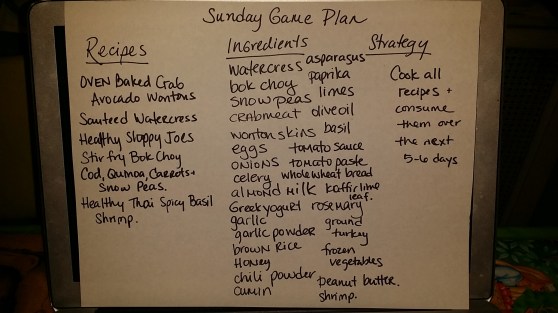 Sunday Game Plan
Recipes
OVEN Baked Crab
Avocado Wontons
Sauteed Watercress
Healthy Sloppy Joes
Stir fry Bok Choy
Cod, Quinoa, Carrots +
Snow Peas.
Healthy Thai Spicy Basil
Shrimp.
Ingredients
watercress
bok choy
snow peas
CRABmeat
wonton skins
eggs
ONIONS
celery
almond milk
Greek yogurt
garlic
garlic powder
brown Rice
Honey
chili powder
cumin
asparagus
paprika
limes
olive oil
basil
tomato sauce
tomato paste
whole wheat bread
Kaffir lime
leaf.
rosemary
ground
turkey
frozen
vegetables
peanut butter.
shrimp.
Strategy
Cook all
recipes +
consume
them over
the next
5-6 days